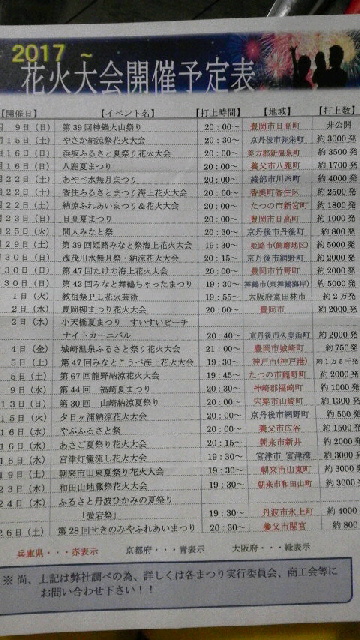 2017～
花火大会開催予定表
【開催日】 【イベント名】 【打上時間】 【地域】 【打上数】
9日（日） 第39回神鍋火山祭り 20：00～ 豊岡市日高町 非公開
15日（土） やさか納涼花火大会 20：00～ 京丹後市弥栄町
16日（日） 浜坂ふるさと夏祭り花火大会 20：00～ 約3500発
16日（日） 八鹿夏まつり 20：00～ 養父市八鹿町 約1700発
22日（土） あやべ水無月まつり 20：00～ 綾部市 約4000発
22日（土） 香住ふるさとまつり海上花火大会 20：00～ 香美町香住区 約2500発
22日（土） 納涼ふれあいまつり＆花火大会 20：00～ たつの市新宮町 約1800発
23日（日） 日高夏まつり 20：00～ 豊岡市日高町 約1000発
25日（火） 間人みなと祭 20：30～ 京丹後市丹後町 約800発
29日（土） 第39回姫路みなと祭海上花火大会 19：30～ 約5000発
30日（日） 20：15～ 京丹後市網野町 約2000発
30日（日） 第47回たけの海上花火大会 20：00～ 豊岡市竹野町 約2000発
30日（日） 第43回みなと舞鶴ちゃったまつり 19：30～
1日（火） 教祖祭PL花火芸術 19：55～ 大阪府富田林市 約2万発
2日（水） 豊岡柳まつり花火大会 20：00～ 豊岡市 約2000発
2日（水） 小天橋夏まつり すいすいビーチ
ナイ・カーニバル 20：40～ 京丹後市久美浜町 約2000発
4日（金） 城崎温泉ふるさと祭り花火大会 21：00～ 豊岡市城崎町 約750発
5日（土） 第47回みなとこうべ海上花火大会 19：30～ 神戸市（神戸港）
5日（土） 第67回龍野納涼花火大会 19：45～ たつの市龍野町 約2000発
9日（水） 第44回 福崎夏まつり 20：30～ 神崎郡福崎町 約1000発
13日（日） 第30回 山崎納涼夏祭り 20：00～ 宍粟市山崎町 約1300発
15日（火） 20：00～ 京丹後市網野町 約500発
16日（水） やぶふるさと祭 20：00～ 養父市広谷 約1500発
16日（水） あさご夏祭り花火大会 20：15～ 朝来市新井 約2500発
16日（水） 宮津灯籠流し花火大会 19：30～ 宮津市 宮津湾 約3000発
19日（土） 朝来市山東夏祭り花火大会 19：30～ 朝来市山東町 約3000発
23日（水） 和田山地蔵祭花火大会 19：30～ 朝来市和田山町 約3000発
24日（木） ふるさと丹波ひかみの夏祭り
「愛宕祭」 19：30～ 丹波市氷上町 約4000発
26日（土） 第28回すきのみやふれあいまつり 20：30～ 養父市関宮 約800発
兵庫県・・・赤表示 京都府・・・青表示 大阪府・・・緑表示
※ 尚、上記は弊社調べの為、詳しくは各まつり実行委員会、商工会等に
お問い合わせ下さい！！